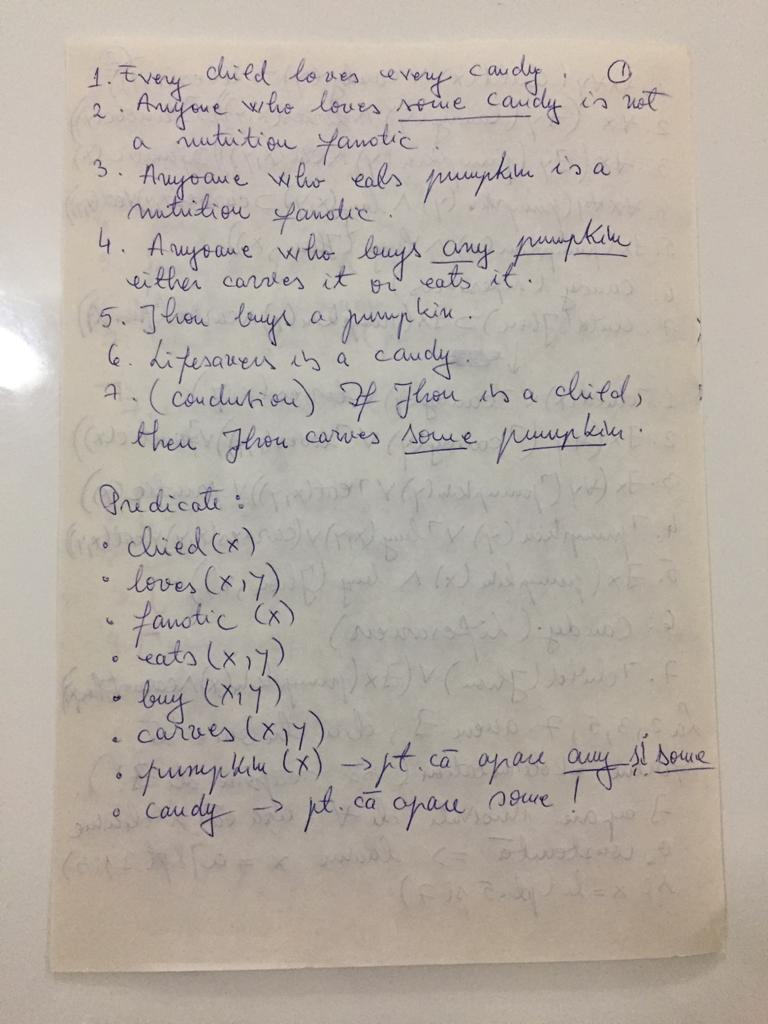 1. Every child loves every candy. ①
2. Anyone who loves some candy is not
a nutrition fanatic.
3. Anyoane who eats pumpkin is a
nutrition fanatic.
4. Anyoane who buys any pumpkin
either carves it or eats it.
5. Jhon buys a pumpkin.
6. Lifesavers is a candy.
7. (conclution) If Jhon is a child,
then Jhon carves some pumpkin.
Predicate:
• chied (x)
• loves (x,y)
• fanatic (x)
• eats (x,y)
• buy (x,y)
• carves (x,y)
• pumpkin (x) → pt. că apare any și some
• candy → pt. că apare some!